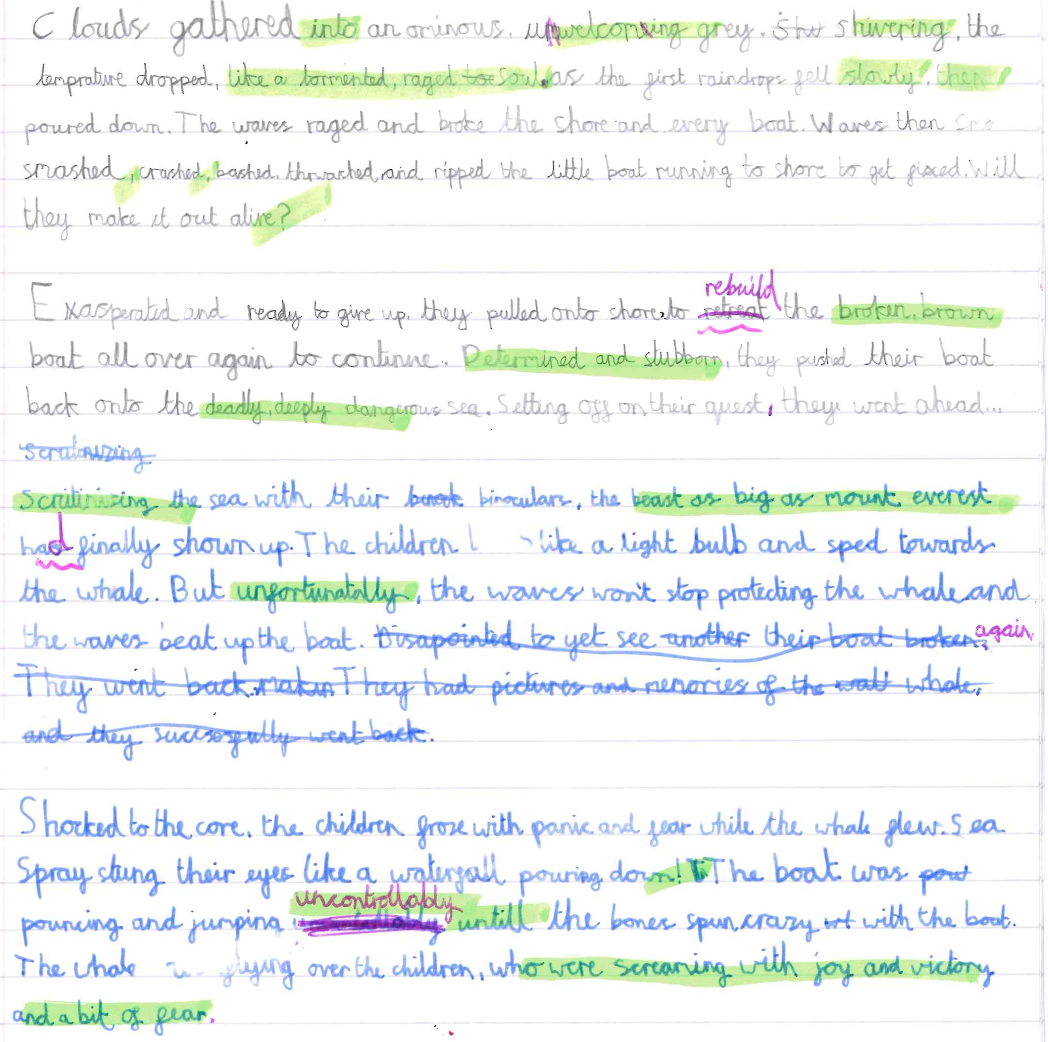 Clouds gathered into an ominous, unwelcoming grey. Shivering, the
temprature dropped, like a tormented, raged soul, as the first raindrops fell slowly, then
poured down. The waves raged and broke the shore and every boat. Waves then
smashed, crashed, bashed, thrwached, and ripped the little boat running to shore to get fixed. Will
they make it out alive?
Exasperated and ready to give up, they pulled onto shore, to rebuild the broken, brown
boat all over again to continue. Determined and stubborn, they pushed their boat
back onto the deadly, deeply dangerous sea. Setting off on their quest, they went ahead...
Scrutinizing
Scritinising the sea with their binoculars, the beast as big as mount everest
had finally shown up. The children like a light bulb and sped towards
the whale. But unfortunatally, the waves won't stop protecting the whale and
the waves beat up the boat. Disapointed to yet see another their boat broken, again
They went back, makin They had pictures and memories of the whale,
and they succsesfully went back.
Shocked to the core, the children froze with panic and fear while the whale flew. Sea
Spray stung their eyes like a waterfall pouring down! The boat was
pouncing and jumping uncontrollably untill the bones spun crazy with the boat.
The whale flying over the children, who were screaming with joy and victory
and a bit of fear.